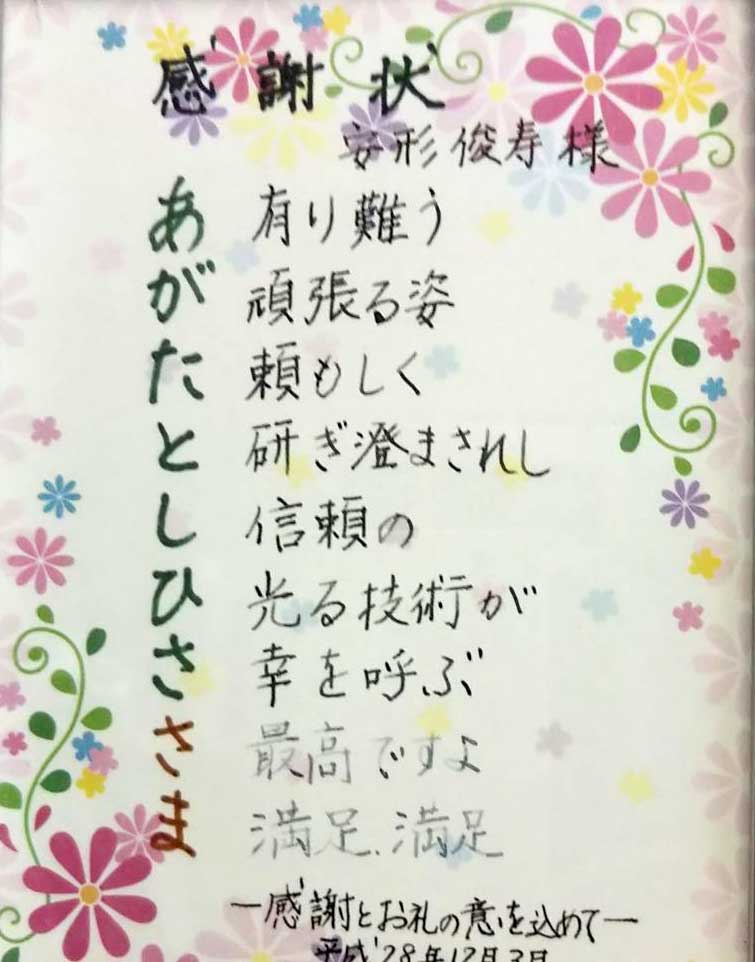 感謝状
安形俊寿様
あ 有り難う
が 頑張る姿
た 頼もしく
と 研ぎ澄まされし
し 信頼の
ひ 光る技術が
さ 幸を呼ぶ
さ 最高ですよ
ま 満足、満足
—感謝とお礼の意を込めて—
平成28年12月3日